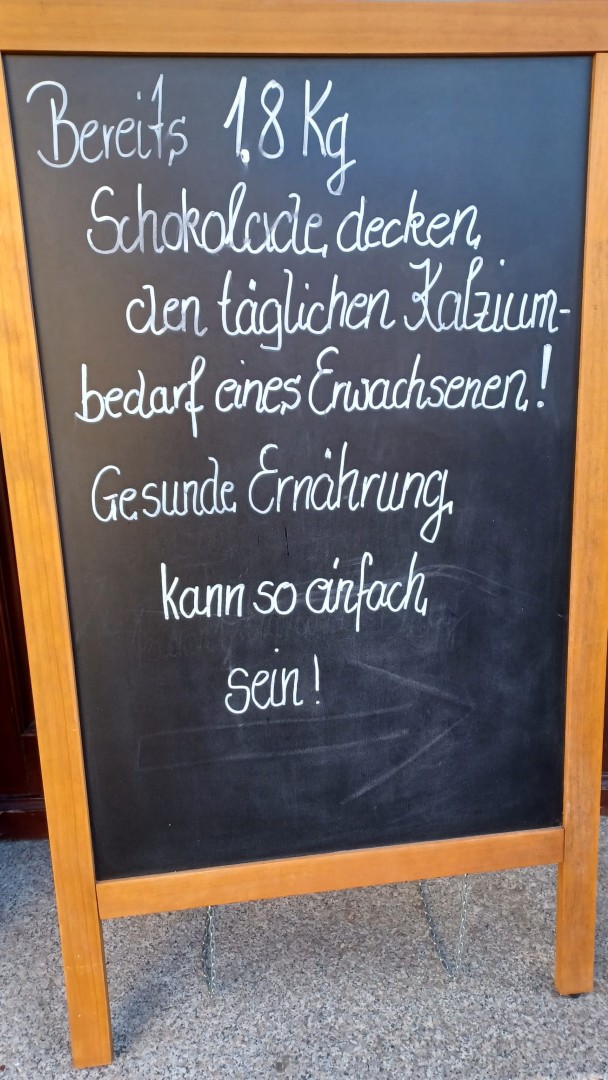 Bereits 1,8 Kg
Schokolade decken
den täglichen Kalzium-
bedarf eines Erwachsenen!
Gesunde Ernährung
kann so einfach
sein!